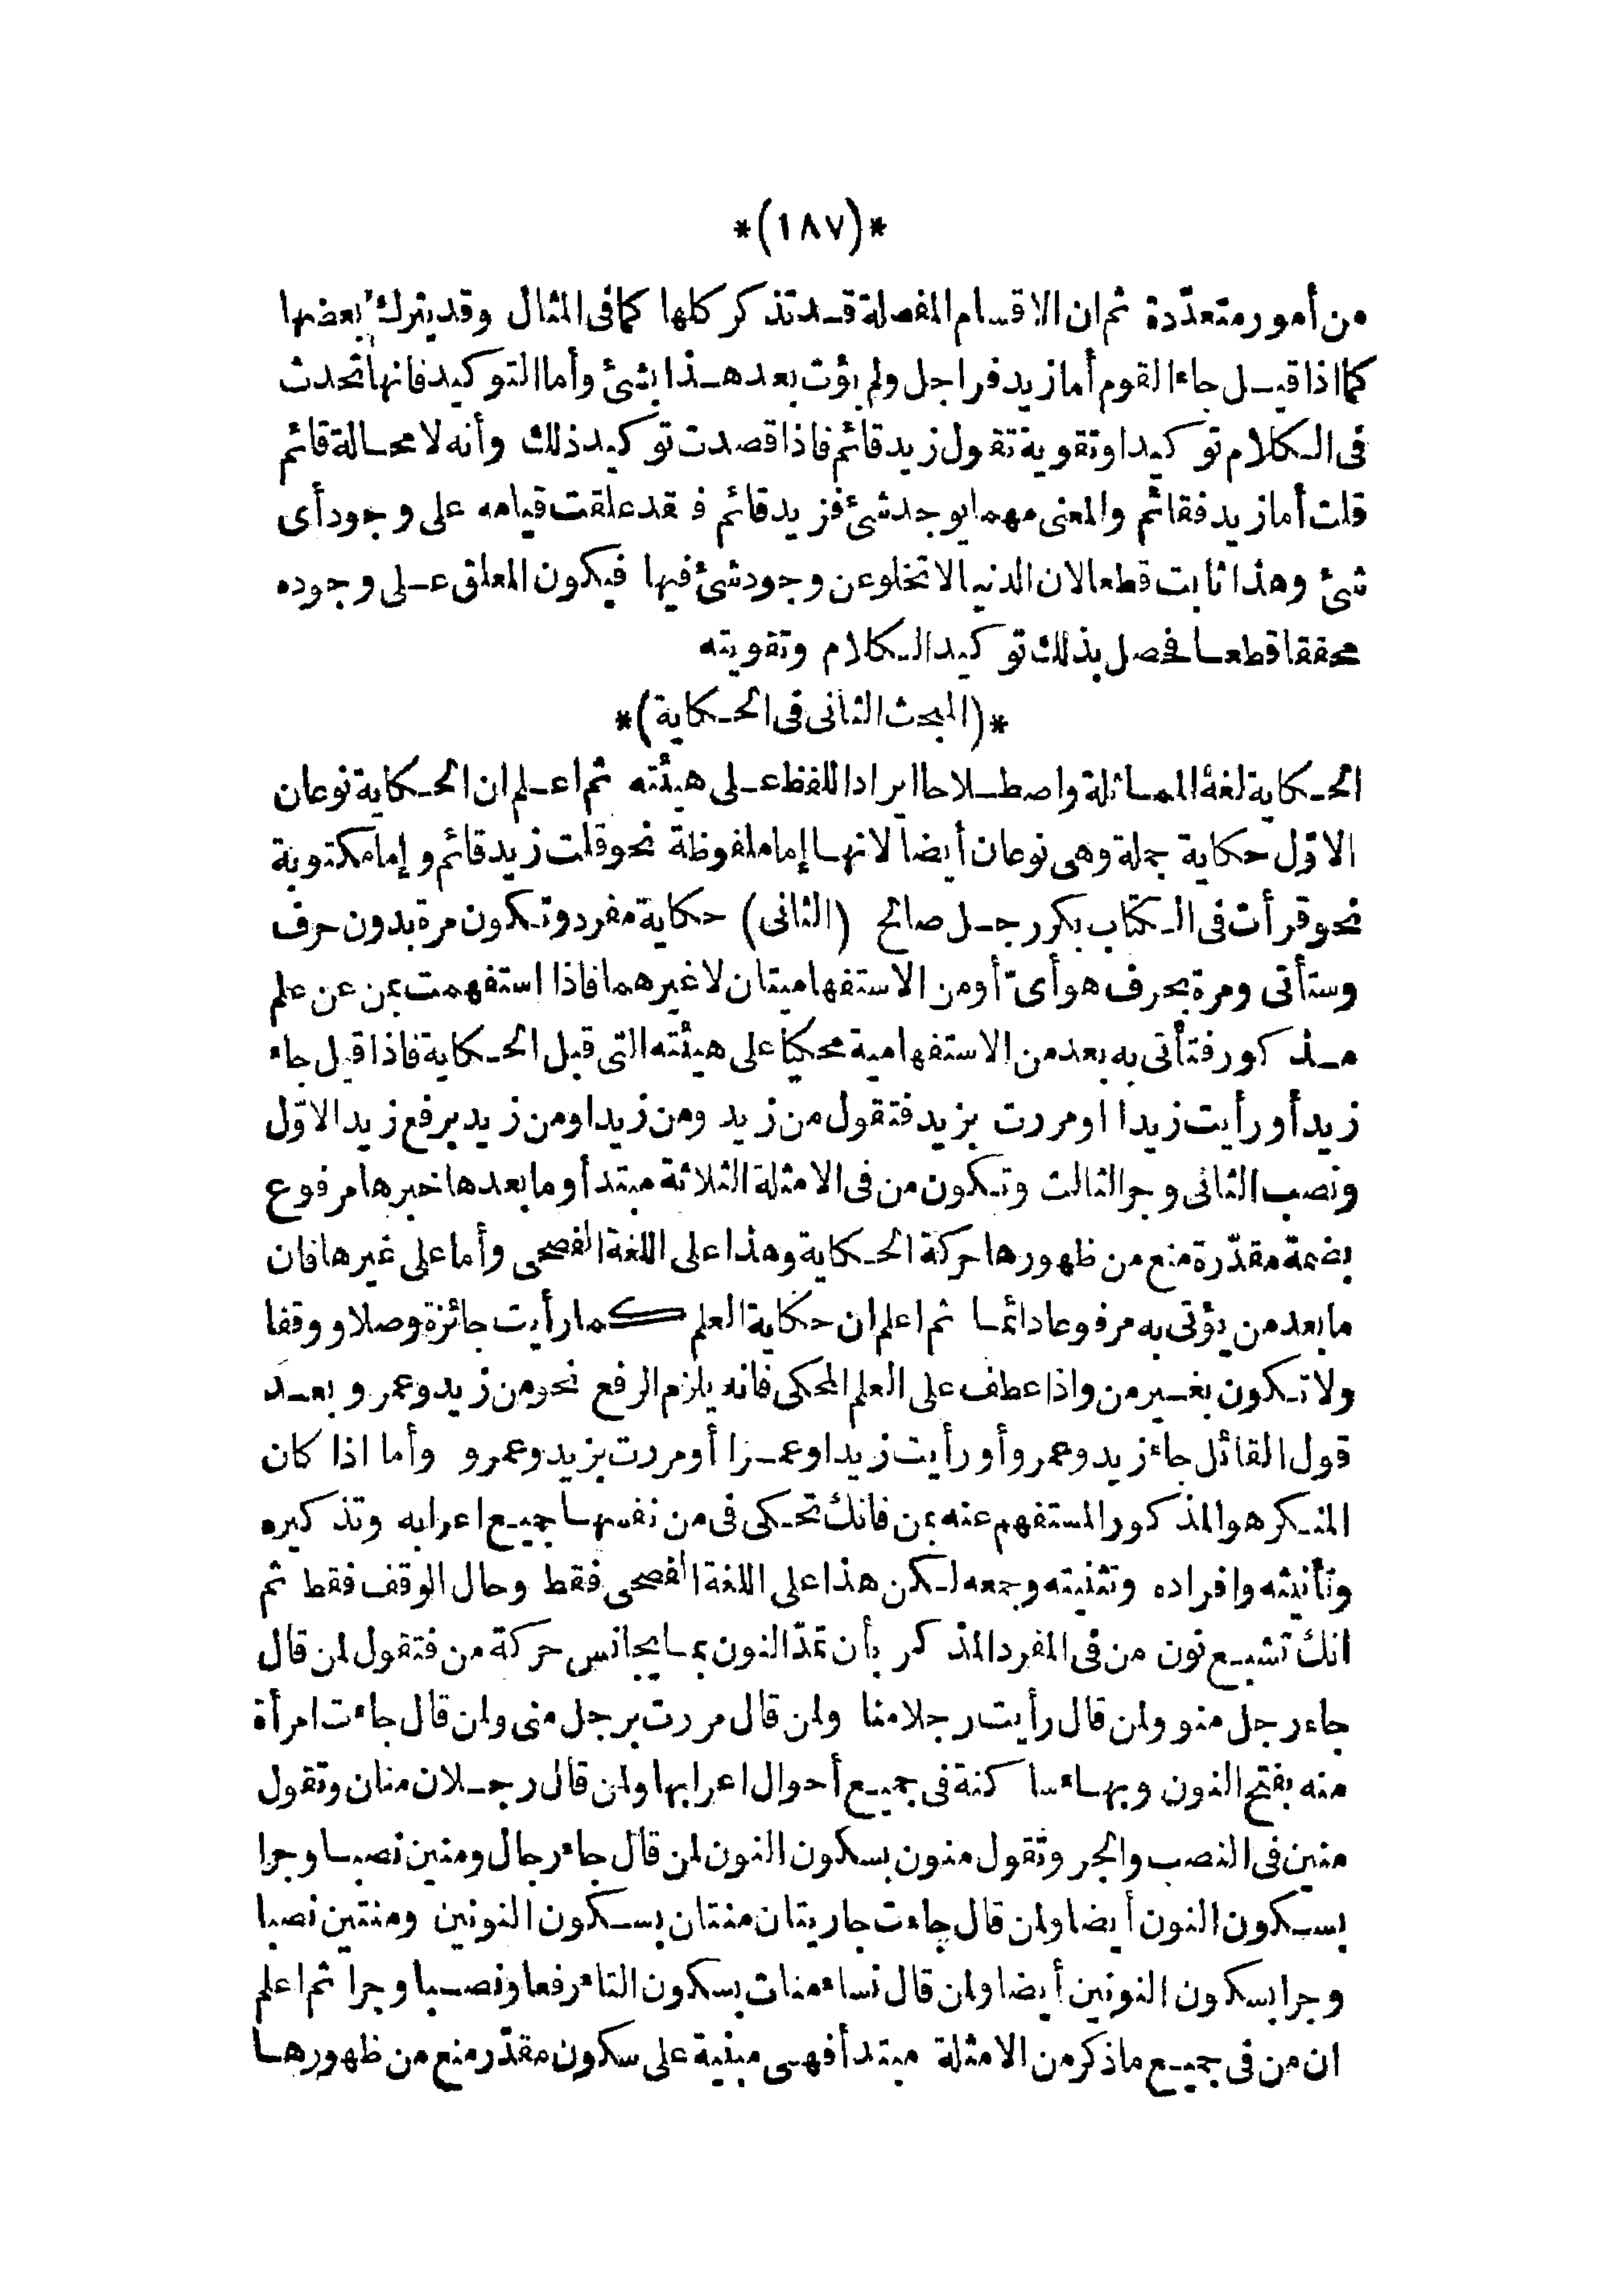 *(١٨٧)*
من أمور متعدّدة ثم ان الاقسام المفصلة قد تذكر كلها كما فى المثال وقد يترك بعضها
كما اذا قيل جاء القوم أما زيد فراجل ولم يؤت بعد هذا بشئ وأما التوكيد فانها تحدث
فى الكلام توكيدا وتقوية تقول زيد قائم فاذا قصدت توكيد ذلك وأنه لا محالة قائم
قلت أما زيد فقائم والمعنى مهما يوجد شئ فزيد قائم فقد علقت قيامه على وجود أى
شئ وهذا ثابت قطعا لان الدنيا لا تخلو عن وجود شئ فيها فيكون المعلق على وجوده
محققا قطعا فحصل بذلك توكيد الكلام وتقويته
*(المبحث الثانى فى الحكاية)*
الحكاية لغة المماثلة واصطلاحا ايراد اللفظ على هيئته ثم اعلم ان الحكاية نوعان
الاوّل حكاية جملة وهى نوعان أيضا لانها إما ملفوظة نحو قلت زيد قائم و إما مكتوبة
نحو قرأت فى الكتاب بكر رجل صالح (الثانى) حكاية مفرد وتكون مرة بدون حرف
وستأتى ومرة بحرف هو أىّ أو من الاستفهاميتان لا غيرهما فاذا استفهمت بمن عن علم
مذكور فتأتى به بعد من الاستفهامية محكيا على هيئته التى قبل الحكاية فاذا قيل جاء
زيد أو رأيت زيدا او مررت بزيد فتقول من زيد ومن زيدا ومن زيد برفع زيد الاوّل
ونصب الثانى وجر الثالث وتكون من فى الامثلة الثلاثة مبتدأ وما بعدها خبرها مرفوع
بضمة مقدّرة منع من ظهورها حركة الحكاية وهذا على اللغة الفصحى وأما على غيرها فان
ما بعد من يؤتى به مرفوعا دائما ثم اعلم ان حكاية العلم كما رأيت جائزة وصلا ووقفا
ولا تكون بغير من واذا عطف على العلم المحكى فانه يلزم الرفع نحو من زيد وعمرو بعد
قول القائل جاء زيد وعمرو أو رأيت زيدا وعمرا أو مررت بزيد وعمرو وأما اذا كان
المنكر هو المذكور المستفهم عنه بمن فانك تحكى فى من نفسها جميع اعرابه وتذكيره
وتأنيثه وافراده وتثنيته وجمعه لكن هذا على اللغة الفصحى فقط وحال الوقف فقط ثم
انك تشبع نون من فى المفرد المذكر بأن تمدّ النون بما يجانس حركة من فتقول لمن قال
جاء رجل منو ولمن قال رأيت رجلا منا ولمن قال مررت برجل منى ولمن قال جاءت امرأة
منه بفتح النون وبهاء ساكنة فى جميع أحوال اعرابها ولمن قال رجلان منان وتقول
منين فى النصب والجر وتقول منون بسكون النون لمن قال جاء رجال ومنين نصبا وجرا
بسكون النون أيضا ولمن قال جاءت جاريتان منتان بسكون النونين ومنتين نصبا
وجرا بسكون النونين أيضا ولمن قال نساء منات بسكون التاء رفعا ونصبا وجرا ثم اعلم
ان من فى جميع ما ذكر من الامثلة مبتدأ فهى مبنية على سكون مقدّر منع من ظهورها